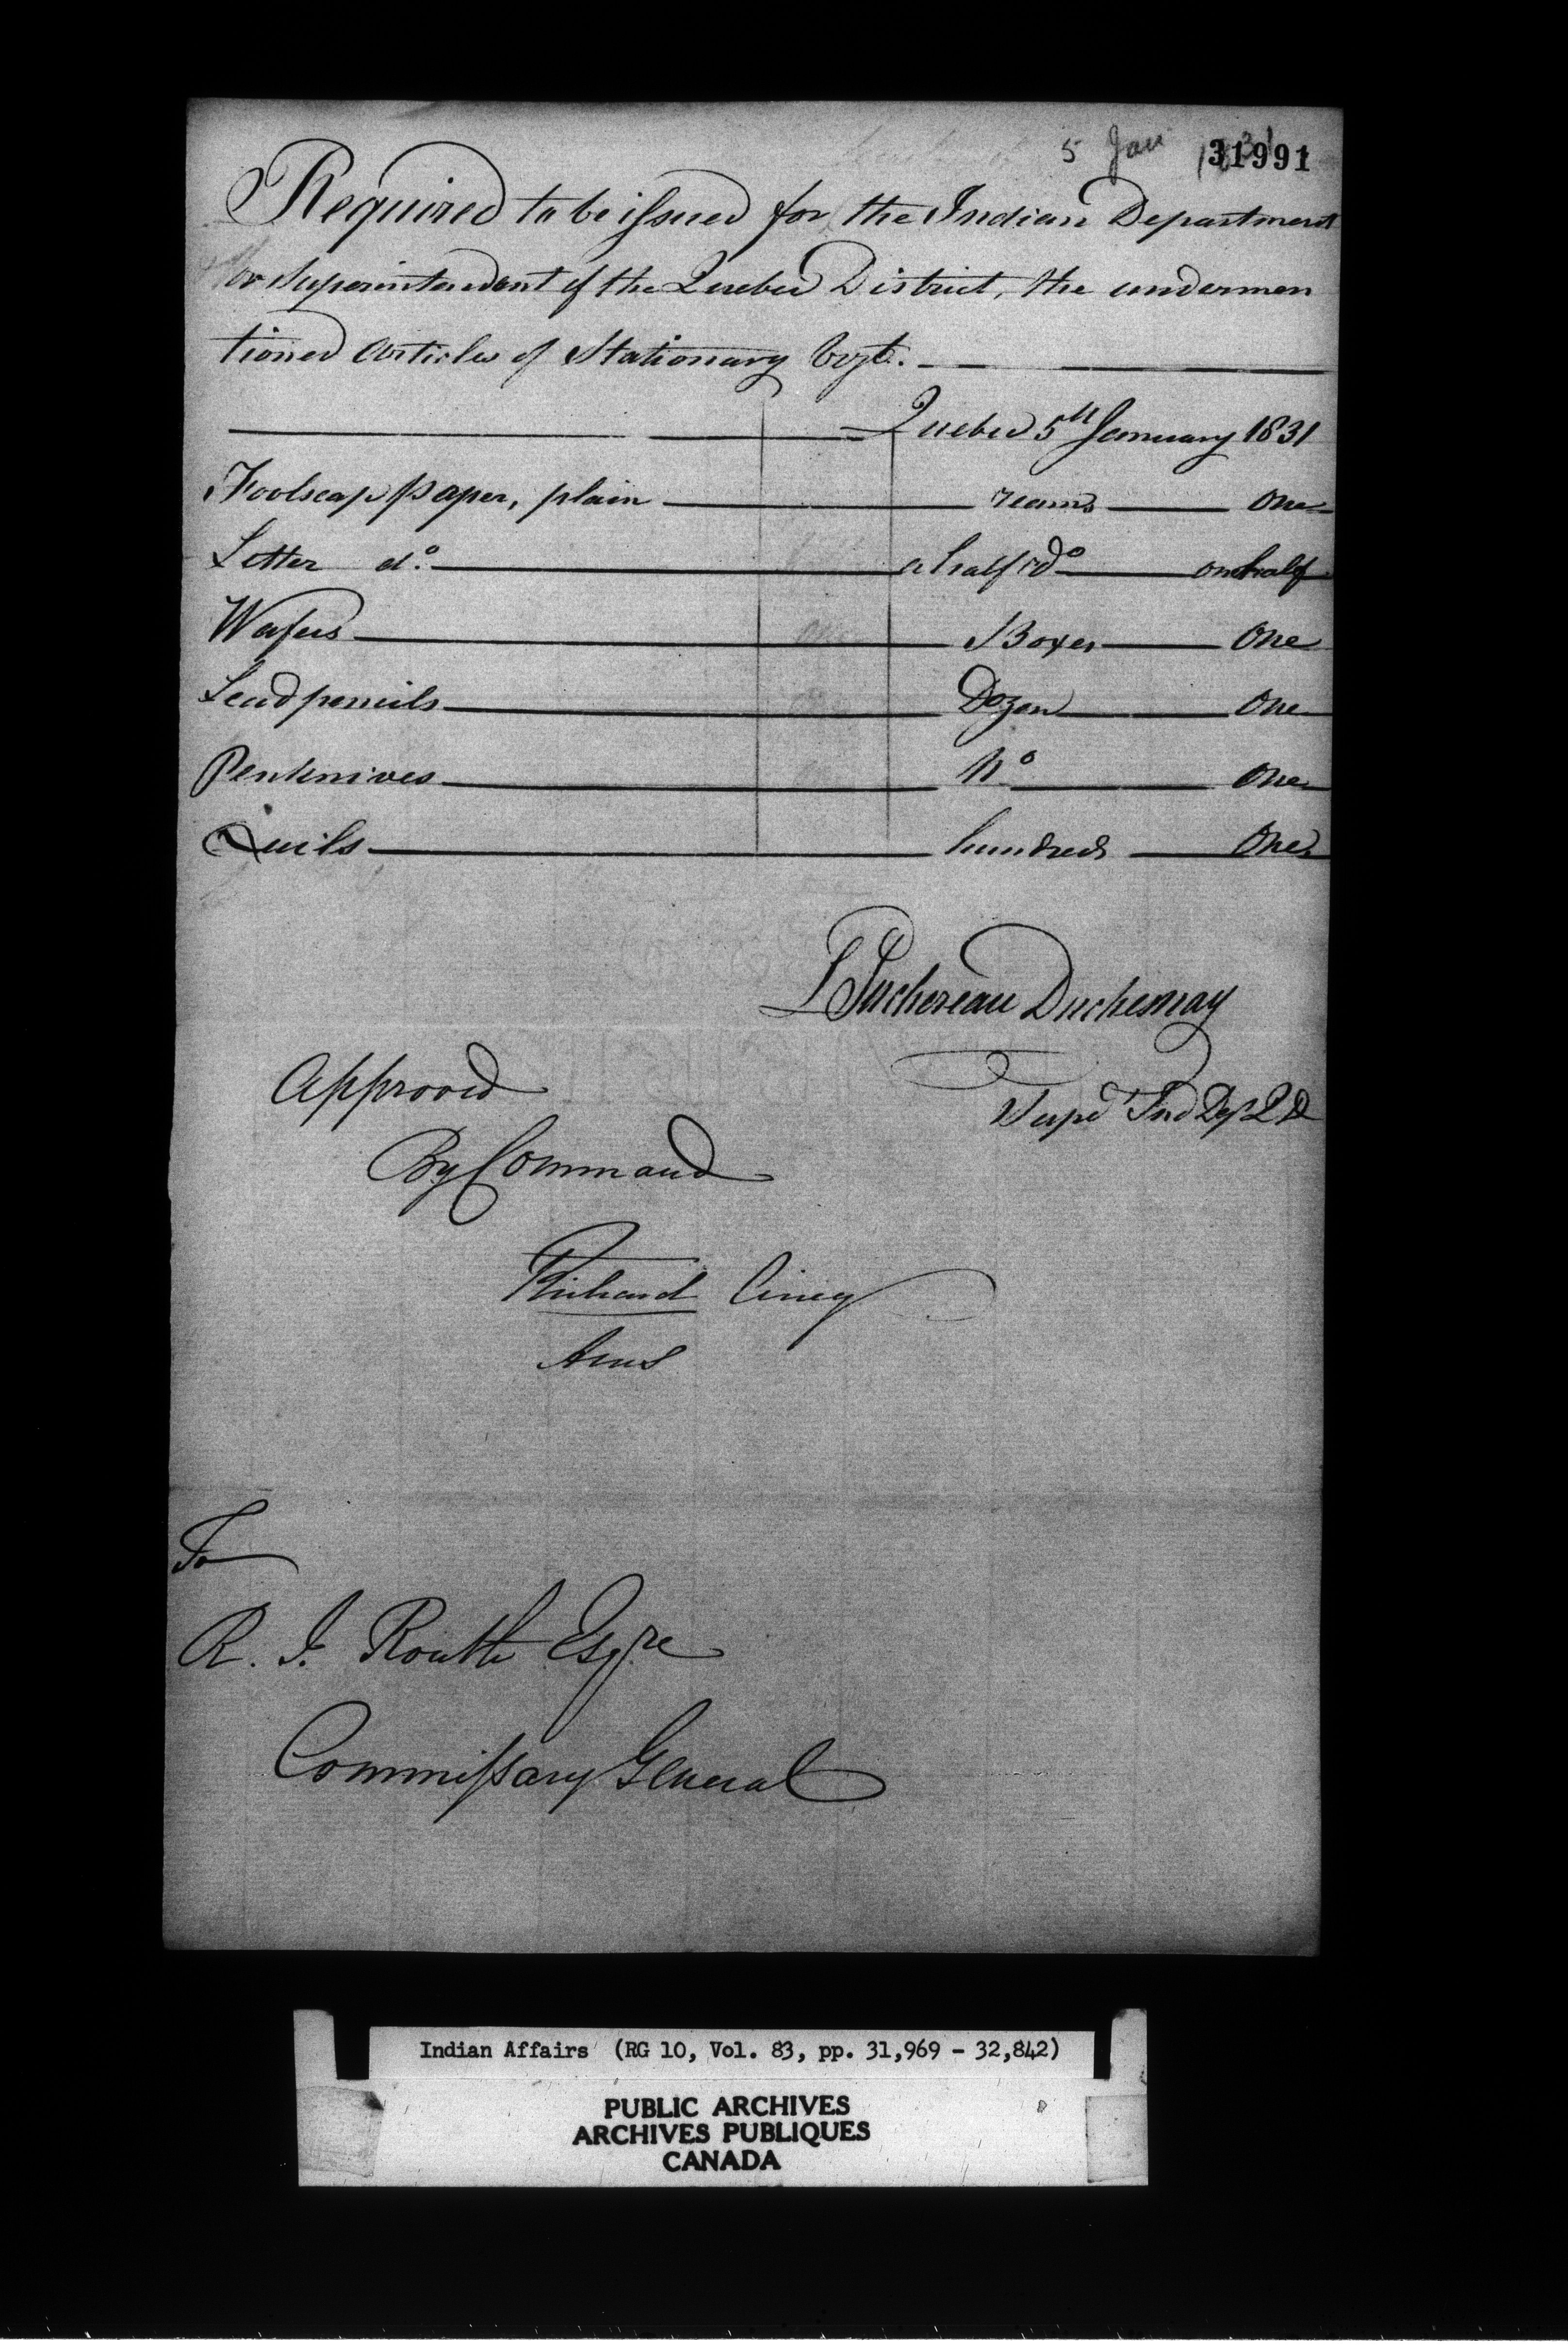 5 Jan 1831
31991
Required to be issued for the Indian Department
or Superintendant of the Quebec District, the undermen
tioned Articles of Stationary Vizt.
Quebec 5th January 1831
Foolscap paper, plain reams One
Letter do. a half do one half
Wafers Boxes One
Lead pencils Dozen One
Penknives No One
Quils hundreds One
L Juchereau Duchesnay
Supd Ind Dep Q D
Approved
By Command
Richard
To
R. I. Routh Esqre
Commissary General
Indian Affairs (RG 10, Vol. 83, pp. 31,969 - 32,842)
PUBLIC ARCHIVES
ARCHIVES PUBLIQUES
CANADA